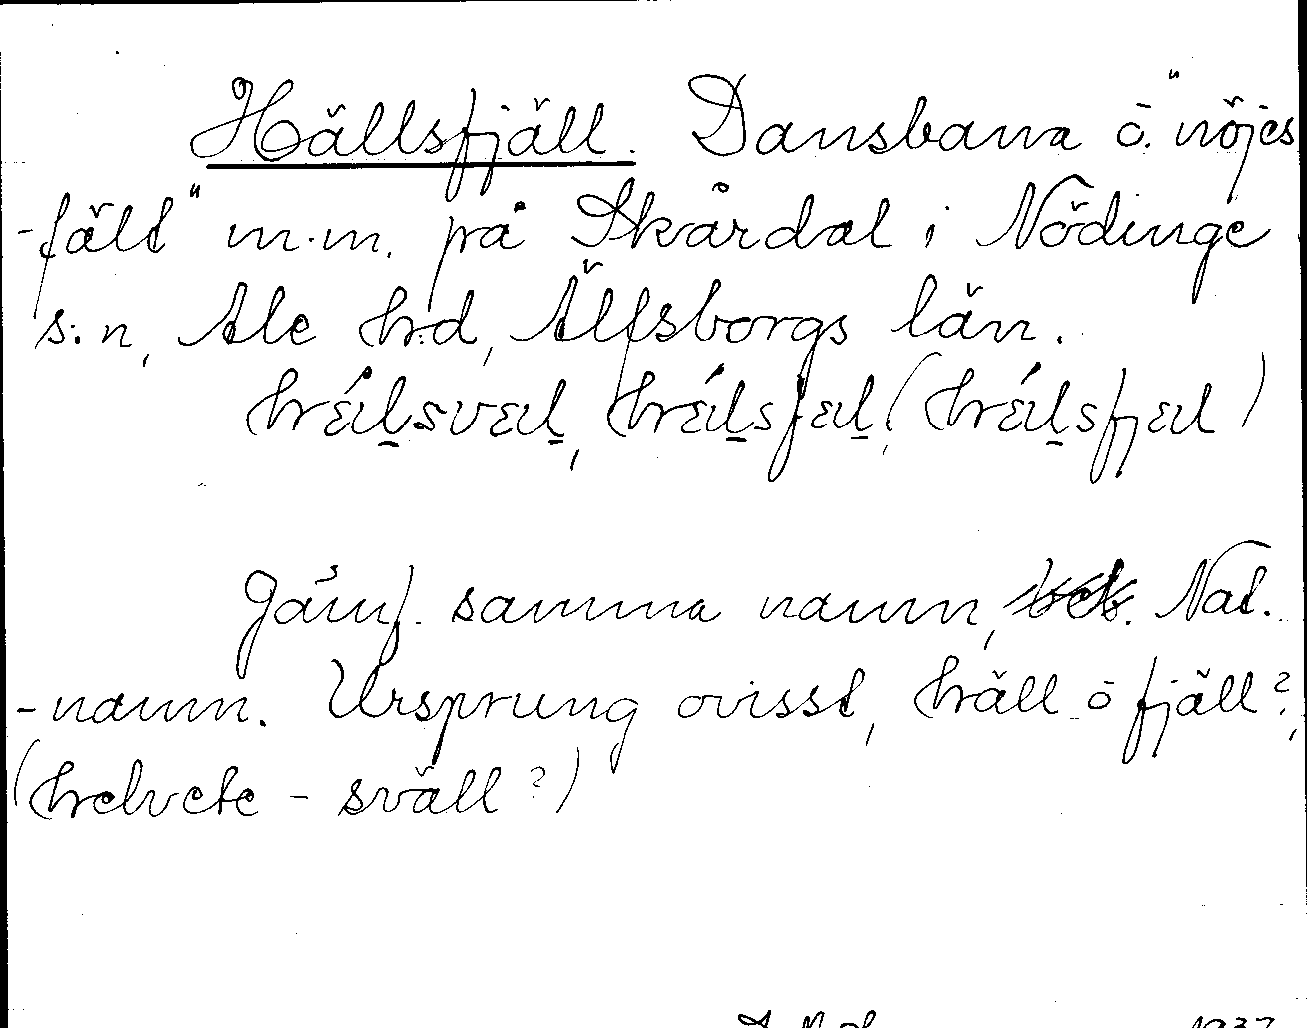 Hällsfjäll. Dansbana o. "nöjes
-fält" m.m. på Skårdal i Nödinge
s:n, Ale h:d, Älfsborgs län.
hɛ́ḷsvɛḷ, hɛ́ḷsfɛḷ, (hɛ́ḷsfjɛl)
Jämf. samma namn, Nat.
-namn. Ursprung ovisst, häll o fjäll?,
(helvete - sväll?)